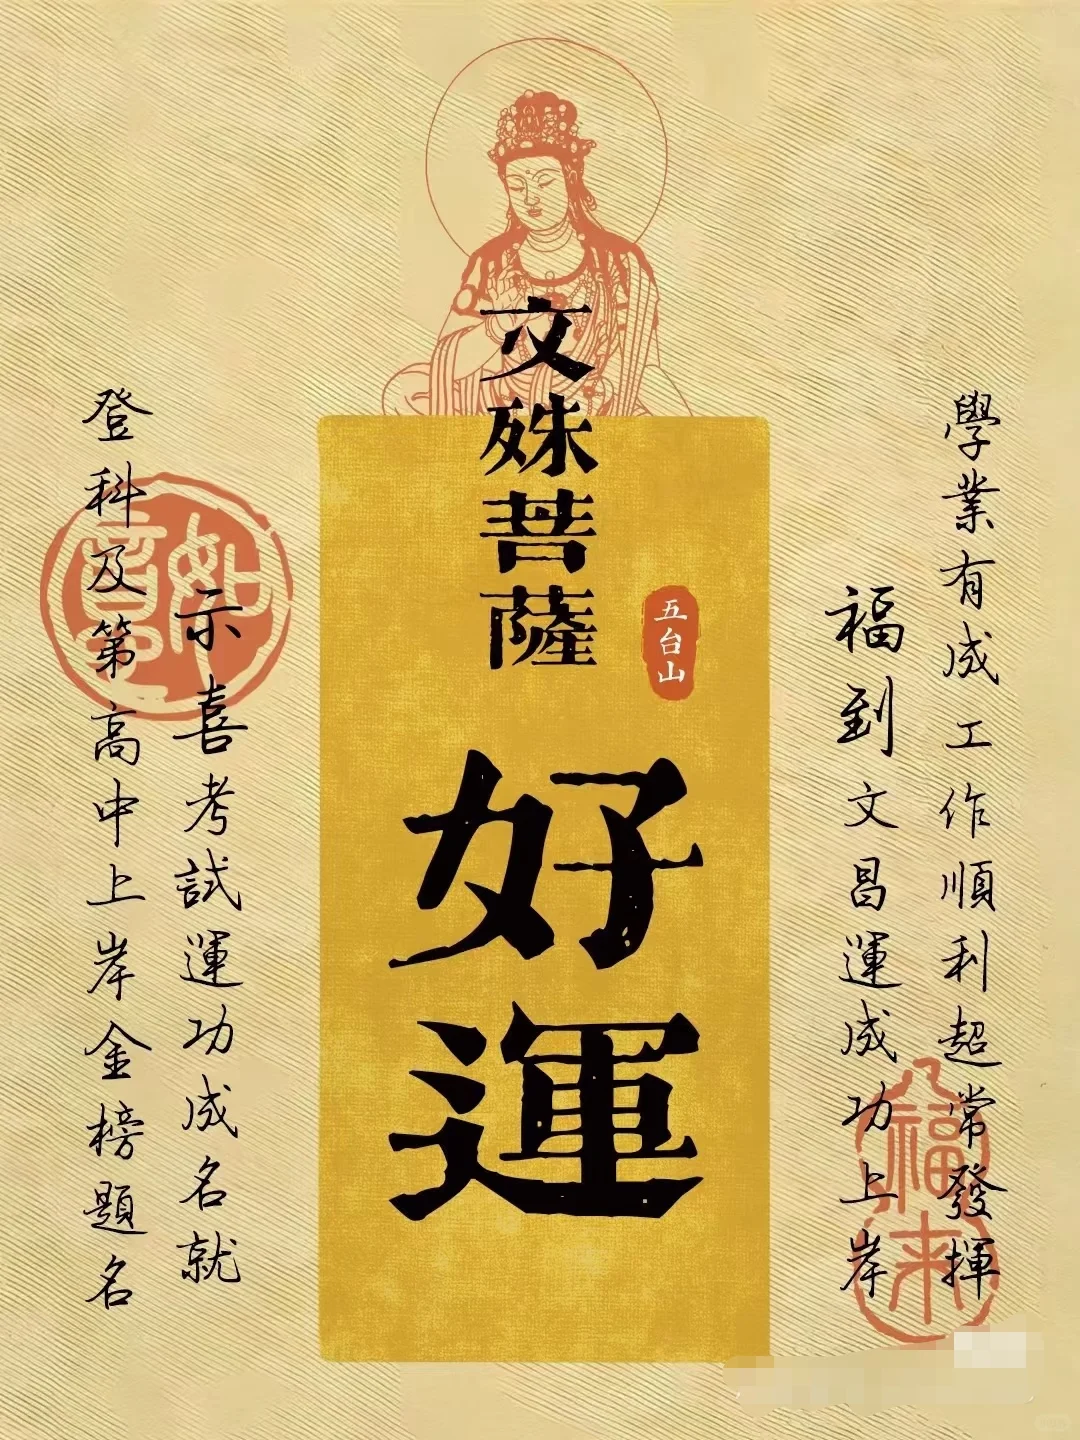 文殊菩薩
好運
五台山
學業有成工作順利超常發揮
福到文昌運成功上岸
示喜考試運功成名就
登科及第高中上岸金榜題名
福来